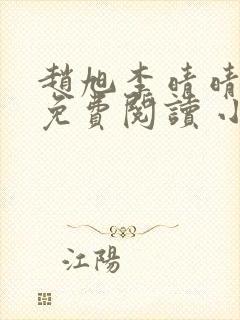 趙旭李晴晴
免費閱讀小
江陽